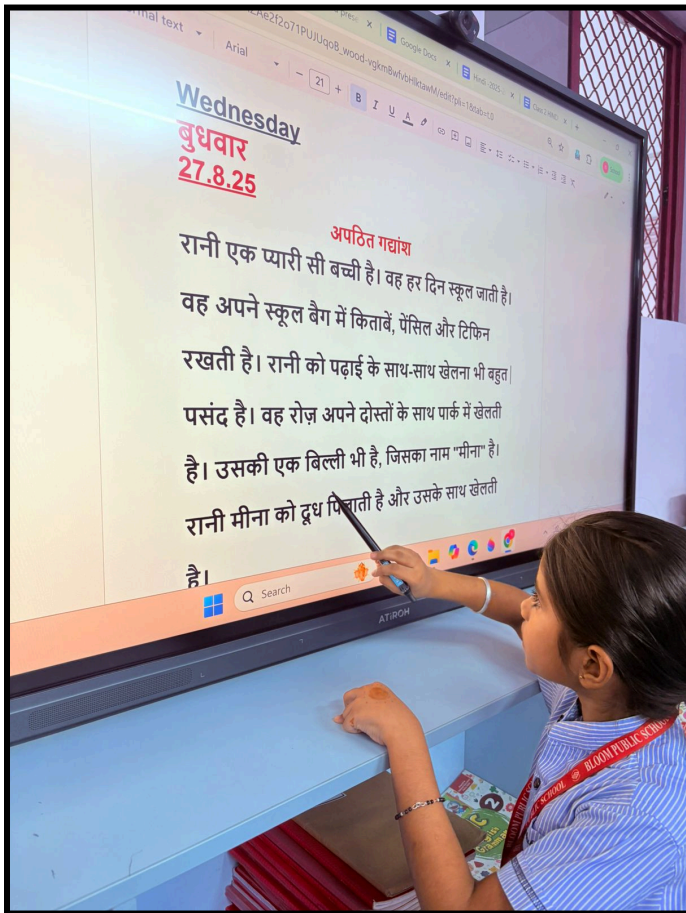 mal text
Arial
21
B
I
U
A
Google Docs
Wednesday
बुधवार
27.8.25
अपठित गद्यांश
रानी एक प्यारी सी बच्ची है। वह हर दिन स्कूल जाती है।
वह अपने स्कूल बैग में किताबें, पेंसिल और टिफिन
रखती है। रानी को पढ़ाई के साथ-साथ खेलना भी बहुत
पसंद है। वह रोज़ अपने दोस्तों के साथ पार्क में खेलती
है। उसकी एक बिल्ली भी है, जिसका नाम "मीना" है।
रानी मीना को दूध पिलाती है और उसके साथ खेलती
है।
Search
ATiROH
BLOOM PUBLIC SCHOOL
SCHOOL
BLOOM PUBLIC
C
2